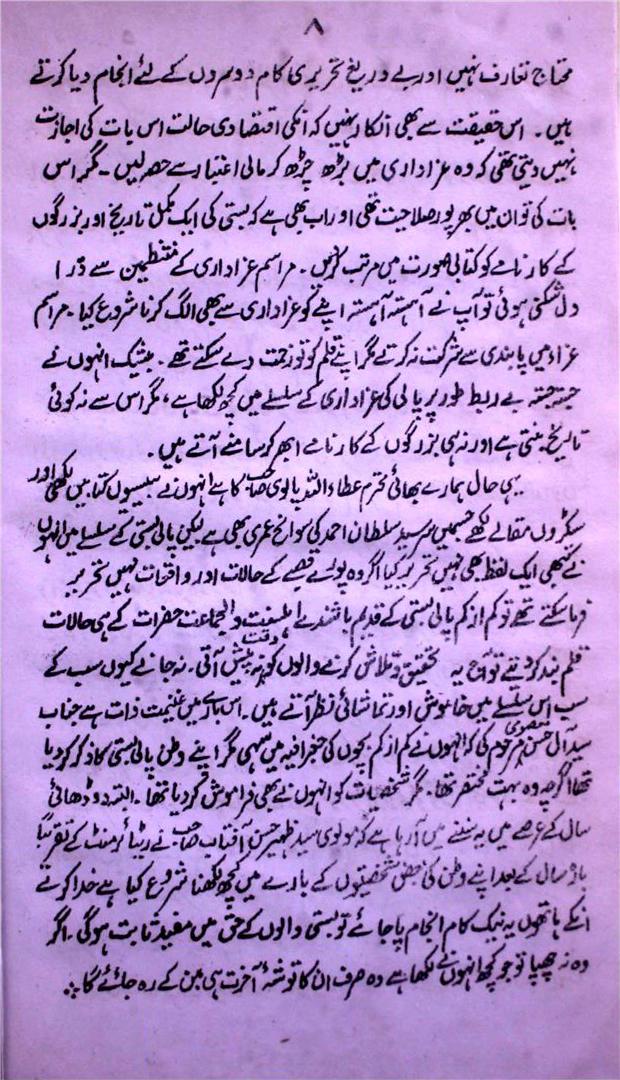 ۸
محتاج تعارف نہیں اور بے دریغ تحریری کام دوسروں کے لئے انجام دیا کرتے
ہیں۔ اس حقیقت سے بھی انکار نہیں کہ انکی اقتصادی حالت اس بات کی اجازت
نہیں دیتی تھی کہ وہ عزاداری میں بڑھ چڑھ کر مالی اعتبار سے حصہ لیں۔ مگر اس
بات کی تو ان میں بھرپور صلاحیت تھی اور اب بھی ہے کہ بستی کی ایک مکمل تاریخ اور بزرگوں
کے کارنامے کو کتابی صورت میں مرتب کریں۔ مراسم عزاداری کے منتظمین سے ذرا
دل شکنی ہوئی تو آپ نے آہستہ آہستہ اپنے کو عزاداری سے بھی الگ کرنا شروع کیا۔ مراسم
عزا میں پابندی سے شرکت نہ کرتے مگر اپنے قلم کو تو زحمت دے سکتے تھے۔ بیشک انہوں نے
جستہ جستہ بے ربط طور پر پالی کی عزاداری کے سلسلے میں کچھ لکھا ہے، مگر اس سے نہ کوئی
تاریخ بنتی ہے اور نہ ہی بزرگوں کے کارنامے ابھر کر سامنے آتے ہیں۔
یہی حال ہمارے بھائی محترم عطاء اللہ پالوی صاحب کا ہے انہوں نے بیسیوں کتابیں لکھی اور
سکڑوں مقالے لکھے جسمیں سرسید سلطان احمد کی سوانح عمری بھی ہے لیکن پالی بستی کے سلسلے میں انہوں
نے کبھی ایک لفظ بھی نہیں تحریر کیا اگر وہ پورے قصبے کے حالات اور واقعات نہیں تحریر
فرما سکتے تھے تو کم از کم پالی بستی کے قدیم باشندے اہلسنت والجماعت حضرات کے ہی حالات
قلم بند کر دیتے تو آج یہ تحقیق و تلاش کرنے والوں کو دقت نہ پیش آتی۔ نہ جانے کیوں سب کے
سب اس سلسلے میں خاموش اور تماشائی نظر آتے ہیں۔ اس بارے میں غنیمت ذات ہے جناب
سید آل حسن معصومی مرحوم کی کہ انہوں نے کم از کم بچوں کی جغرافیہ میں سہی مگر اپنے وطن پالی بستی کا ذکر کر دیا
تھا اگرچہ وہ بہت مختصر تھا۔ مگر شخصیات کو انہوں نے بھی فراموش کر دیا تھا۔ البتہ دو ڈھائی
سال کے عرصے میں یہ سننے میں آ رہا ہے کہ مولوی سید ظہیر حسن آفتاب صاحب نے ریٹائرمنٹ کے تقریباً
سال کے بعد اپنے وطن کی بعض شخصیتوں کے بارے میں کچھ لکھنا شروع کیا ہے خدا کرے
انکے ہاتھوں یہ نیک کام انجام پا جائے تو بستی والوں کے حق میں مفید ثابت ہوگی۔ اگر
وہ نہ چھپا تو جو کچھ انہوں نے لکھا ہے وہ صرف ان کا توشۂ آخرت ہی بن کے رہ جائے گا